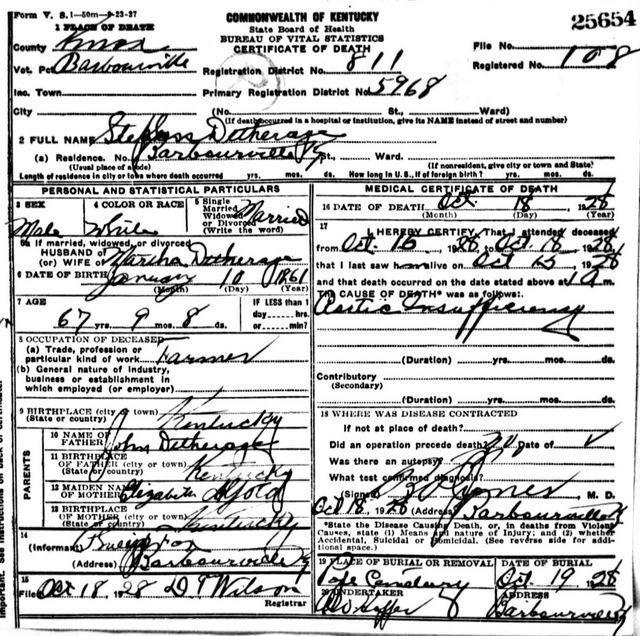 Form V. S. 1—50m—9-23-27
COMMONWEALTH OF KENTUCKY
25654
1 PLACE OF DEATH
State Board of Health
BUREAU OF VITAL STATISTICS
CERTIFICATE OF DEATH
County Knox
File No.
Vot. Pct Barbourville
Registration District No. 811
Registered No. 108
Inc. Town
Primary Registration District No. 5968
City (No. St., Ward)
(If death occurred in a hospital or institution, give its NAME instead of street and number)
2 FULL NAME Detherage
(a) Residence. No. Barbourville Ky St., Ward.
(Usual place of abode) (If nonresident, give city or town and State)
Length of residence in city or town where death occurred yrs. mos. ds. How long in U. S., if of foreign birth? yrs. mos. ds.
PERSONAL AND STATISTICAL PARTICULARS
3 SEX 4 COLOR OR RACE 5 Single Married Widowed or Divorced (Write the word)
Male White Married
5a If married, widowed, or divorced
HUSBAND of
(or) WIFE of Martha Detherage
6 DATE OF BIRTH January 10 1861
(Month) (Day) (Year)
7 AGE IF LESS than 1
day hrs.
67 yrs. 9 mos. 8 ds. or min?
8 OCCUPATION OF DECEASED
(a) Trade, profession or
particular kind of work Farmer
(b) General nature of industry,
business or establishment in
which employed (or employer)
9 BIRTHPLACE (city or town)
(State or country) Kentucky
PARENTS
10 NAME OF
FATHER John Detherage
11 BIRTHPLACE
OF FATHER (city or town)
(State or country) Kentucky
12 MAIDEN NAME
OF MOTHER Elizabeth
13 BIRTHPLACE
OF MOTHER (city or town)
(State or country) Kentucky
14
(Informant)
(Address) Barbourville Ky
15
Filed Oct 18, 1928 D T Wilson
Registrar
MEDICAL CERTIFICATE OF DEATH
16 DATE OF DEATH Oct. 18, 1928
(Month) (Day) (Year)
17
I HEREBY CERTIFY, That I attended deceased
from Oct 15, 1928, to Oct 18, 1928
that I last saw h alive on Oct 15, 1928
and that death occurred on the date stated above at m.
The CAUSE OF DEATH* was as follows:
Aortic Insufficiency
(Duration) yrs. mos. ds.
Contributory
(Secondary)
(Duration) yrs. mos. ds.
18 WHERE WAS DISEASE CONTRACTED
If not at place of death?
Did an operation precede death? No Date of
Was there an autopsy?
What test confirmed diagnosis?
(Signed) Jones M. D.
Oct 18, 1928 (Address) Barbourville Ky
*State the Disease Causing Death, or, in deaths from Violent
Causes, state (1) Means and nature of Injury; and (2) whether
Accidental, Suicidal or Homicidal. (See reverse side for addi-
tional space.)
19 PLACE OF BURIAL OR REMOVAL DATE OF BURIAL
Cemetery Oct. 19 1928
20 UNDERTAKER ADDRESS
Barbourville Ky